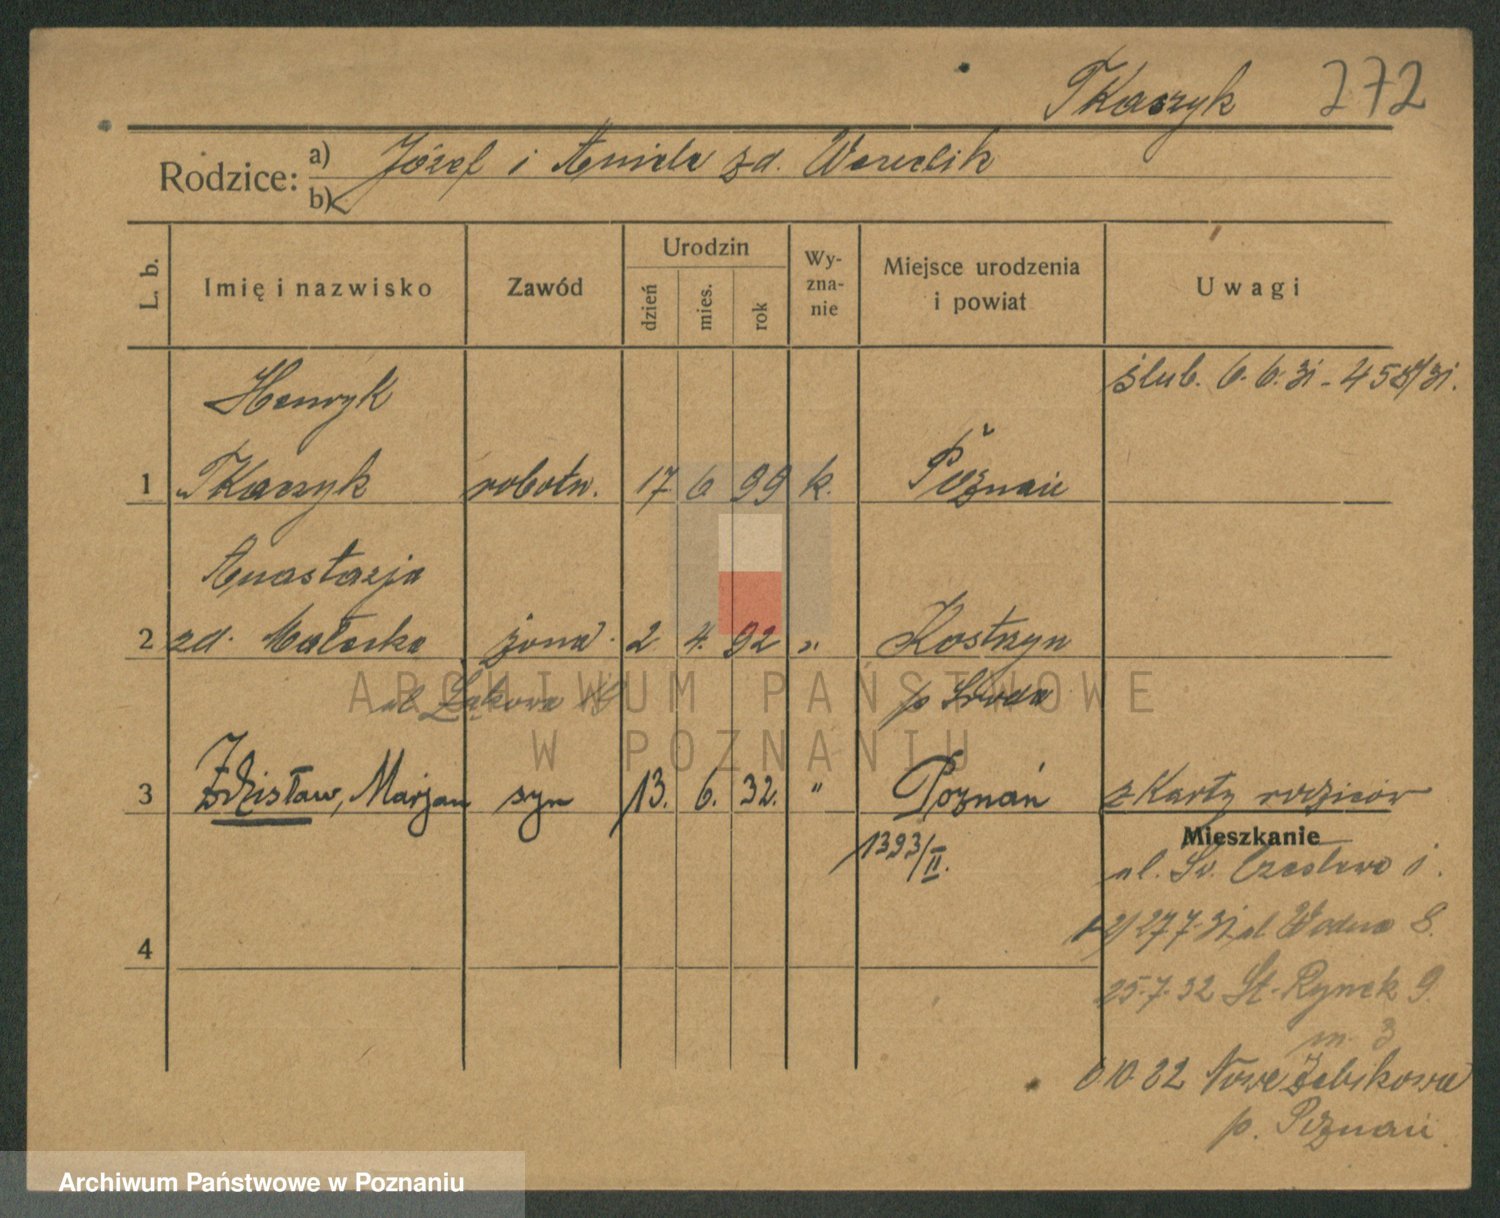 Tkaszyk 272
Rodzice: a) Józef i Aniela zd.
b)
L. b. Imię i nazwisko Zawód Urodzin dzień mies. rok Wyznanie Miejsce urodzenia i powiat Uwagi
ślub. 6.6.31 - 458/31.
Henryk
1 Tkaszyk robotn. 17 6 99 k. Poznań
Anastazja
2 zd. Małecka żona 2 4. 92 „ Kostrzyn
ul Łąkowa p Środa
3 Zdzisław, Marjan syn 13. 6. 32. " Poznań z Karty rodziców
1393/II.
Mieszkanie
ul. Św. Czesława
4
2) 27.7.31 ul Wodna 8.
25.7.32 St. Rynek 9.
m. 3
10 32 Nowe Żabikowo
p. Poznań
ARCHIWUM PAŃSTWOWE
W POZNANIU
Archiwum Państwowe w Poznaniu